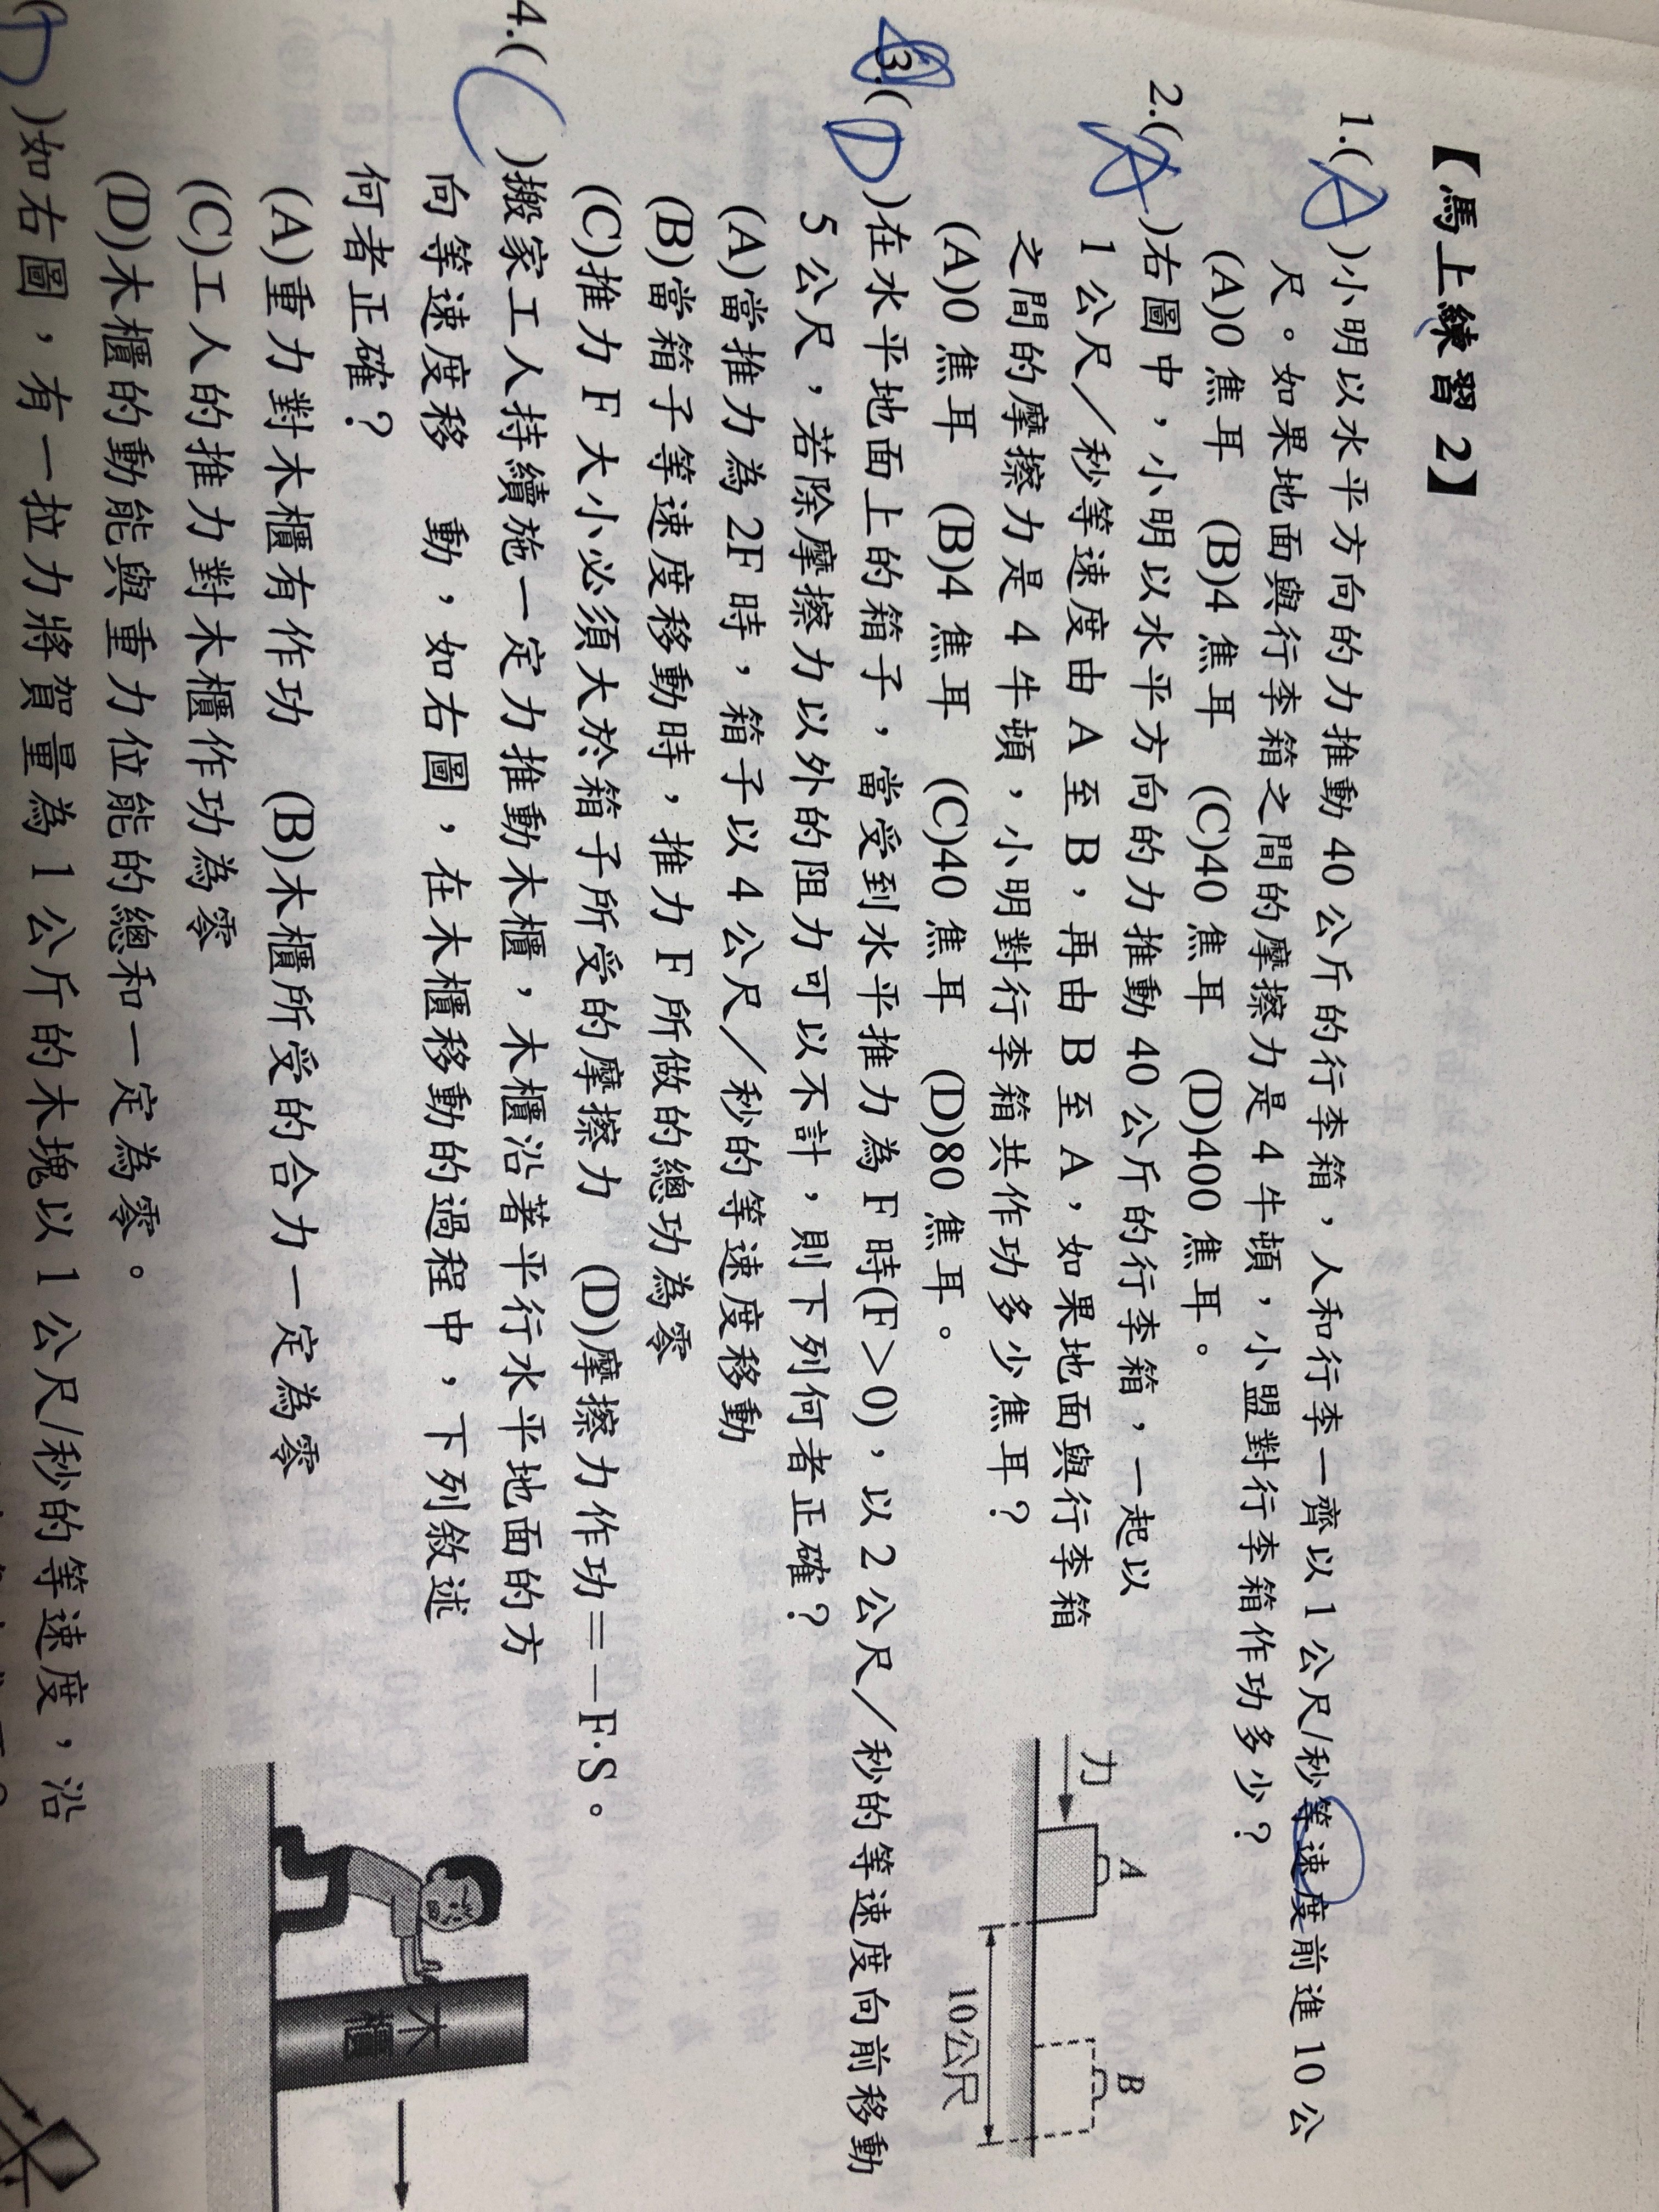 【馬上練習 2】
1.( A )小明以水平方向的力推動 40 公斤的行李箱，人和行李一齊以 1 公尺/秒等速度前進 10 公
尺。如果地面與行李箱之間的摩擦力是 4 牛頓，小盟對行李箱作功多少？
(A)0 焦耳 (B)4 焦耳 (C)40 焦耳 (D)400 焦耳。
2.( A )右圖中，小明以水平方向的力推動 40 公斤的行李箱，一起以
1 公尺／秒等速度由 A 至 B，再由 B 至 A，如果地面與行李箱
之間的摩擦力是 4 牛頓，小明對行李箱共作功多少焦耳？
(A)0 焦耳 (B)4 焦耳 (C)40 焦耳 (D)80 焦耳。
力
A
B
10公尺
3.( D )在水平地面上的箱子，當受到水平推力為 F 時(F＞0)，以 2 公尺／秒的等速度向前移動
5 公尺，若除摩擦力以外的阻力可以不計，則下列何者正確？
(A)當推力為 2F 時，箱子以 4 公尺／秒的等速度移動
(B)當箱子等速度移動時，推力 F 所做的總功為零
(C)推力 F 大小必須大於箱子所受的摩擦力 (D)摩擦力作功＝－F·S。
4.( )搬家工人持續施一定力推動木櫃，木櫃沿著平行水平地面的方
向等速度移 動，如右圖，在木櫃移動的過程中，下列敘述
何者正確？
(A)重力對木櫃有作功 (B)木櫃所受的合力一定為零
(C)工人的推力對木櫃作功為零
(D)木櫃的動能與重力位能的總和一定為零。
木櫃
)如右圖，有一拉力將質量為 1 公斤的木塊以 1 公尺/秒的等速度，沿